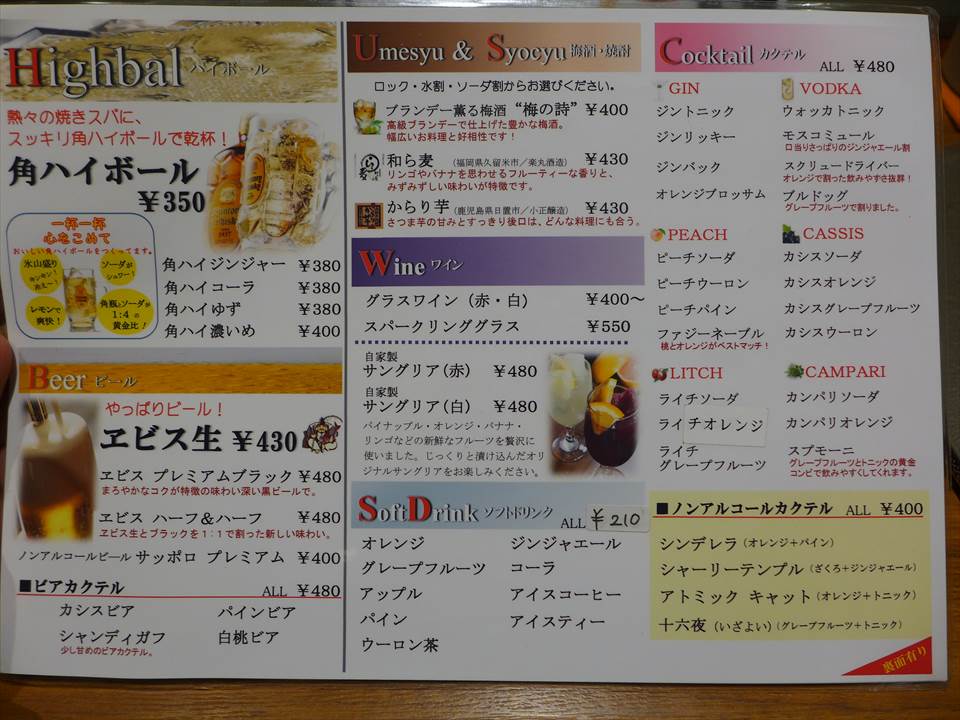 Highbal ハイボール
熱々の焼きスパに、
スッキリ角ハイボールで乾杯！
角ハイボール
￥350
一杯一杯
心をこめて
おいしい角ハイボールをつくってます。
氷山盛り
キンキンに
冷え〜！
ソーダが
シュワー！
レモンで
爽快！
角瓶とソーダが
1:4の
黄金比！
角ハイジンジャー ￥380
角ハイコーラ ￥380
角ハイゆず ￥380
角ハイ濃いめ ￥400
Beer ビール
やっぱりビール！
ヱビス生 ￥430
ヱビス プレミアムブラック ￥480
まろやかなコクが特徴の味わい深い黒ビールで。
ヱビス ハーフ＆ハーフ ￥480
ヱビス生とブラックを１：１で割った新しい味わい。
ノンアルコールビール サッポロ プレミアム ￥400
■ビアカクテル ALL ￥480
カシスビア パインビア
シャンディガフ 白桃ビア
少し甘めのビアカクテル。
Umesyu & Syocyu 梅酒・焼酎
ロック・水割・ソーダ割からお選びください。
ブランデー薫る梅酒 “梅の詩” ￥400
高級ブランデーで仕上げた豊かな梅酒。
幅広いお料理と好相性です！
和ら麦 （福岡県久留米市／楽丸酒造） ￥430
リンゴやバナナを思わせるフルーティーな香りと、
みずみずしい味わいが特徴です。
からり芋 （鹿児島県日置市／小正醸造） ￥430
さつま芋の甘みとすっきり後口は、どんな料理にも合う。
Wine ワイン
グラスワイン（赤・白） ￥400〜
スパークリンググラス ￥550
自家製
サングリア（赤） ￥480
自家製
サングリア（白） ￥480
パイナップル・オレンジ・バナナ・
リンゴなどの新鮮なフルーツを贅沢に
使いました。じっくりと漬け込んだオリ
ジナルサングリアをお楽しみください。
SoftDrink ソフトドリンク
ALL ￥210
オレンジ ジンジャエール
グレープフルーツ コーラ
アップル アイスコーヒー
パイン アイスティー
ウーロン茶
Cocktail カクテル
ALL ￥480
GIN
ジントニック
ジンリッキー
ジンバック
オレンジブロッサム
VODKA
ウォッカトニック
モスコミュール
口当りさっぱりのジンジャエール割
スクリュードライバー
オレンジで割った飲みやすさ抜群！
ブルドッグ
グレープフルーツで割りました。
PEACH
ピーチソーダ
ピーチウーロン
ピーチパイン
ファジーネーブル
桃とオレンジがベストマッチ！
CASSIS
カシスソーダ
カシスオレンジ
カシスグレープフルーツ
カシスウーロン
LITCH
ライチソーダ
ライチオレンジ
ライチ
グレープフルーツ
CAMPARI
カンパリソーダ
カンパリオレンジ
スプモーニ
グレープフルーツとトニックの黄金
コンビで飲みやすくしてくれます。
■ノンアルコールカクテル ALL ￥400
シンデレラ（オレンジ＋パイン）
シャーリーテンプル（ざくろ＋ジンジャエール）
アトミック キャット（オレンジ＋トニック）
十六夜（いざよい）（グレープフルーツ＋トニック）
裏面有り